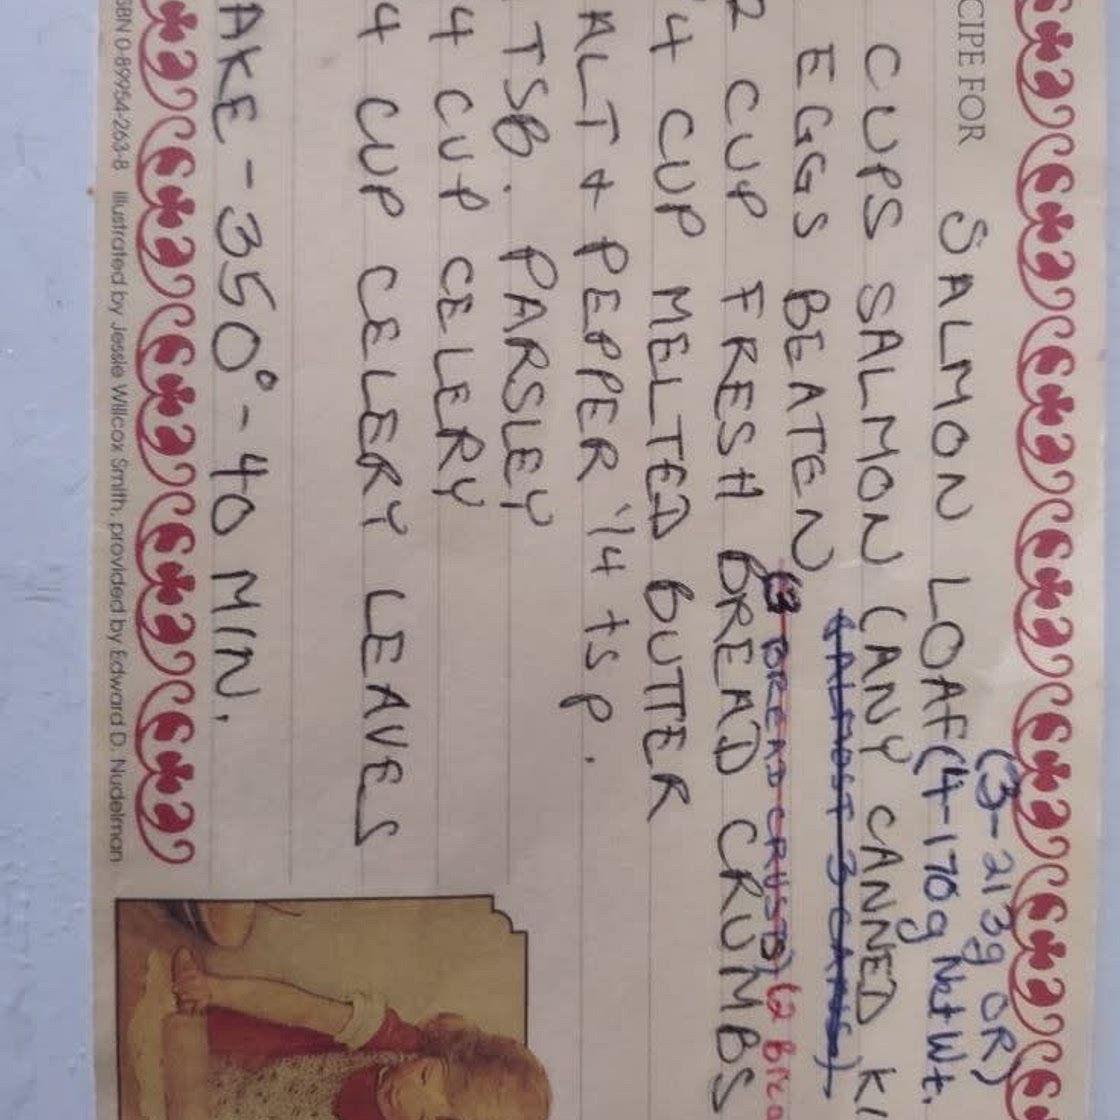 CIPE FOR SALMON LOAF (4-170g Net Wt.
(3-213g OR)
CUPS SALMON (ANY CANNED KI
(ALMOST 3 CANS)
EGGS BEATEN
(3 BREAD CRUSTS) (2 Brea
2 CUP FRESH BREAD CRUMBS
/4 CUP MELTED BUTTER
ALT + PEPPER 1/4 tsp.
TSB. PARSLEY
4 CUP CELERY
4 CUP CELERY LEAVES
AKE - 350° - 40 MIN.
SBN 0-89954-263-8 Illustrated by Jessie Willcox Smith, provided by Edward D. Nudelman